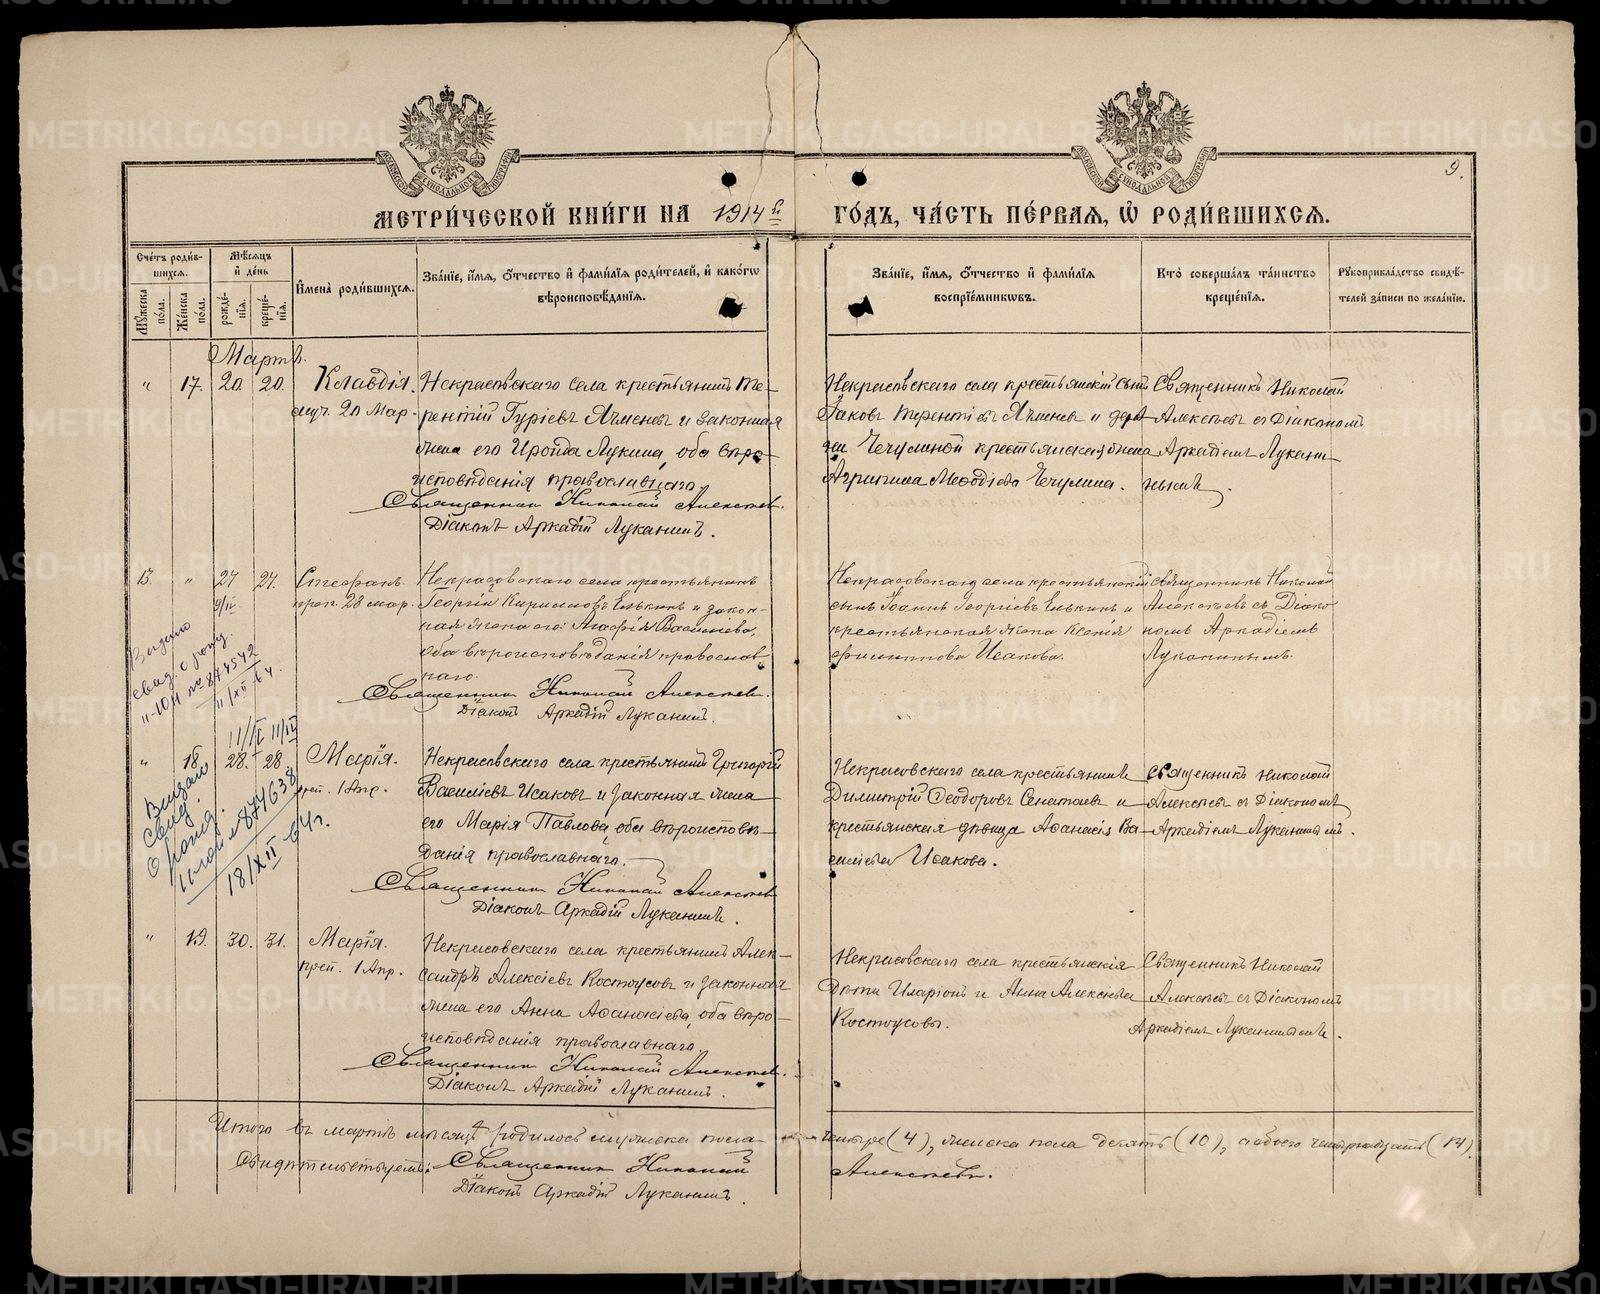 МОСКОВСКОЙ СѴНОДАЛЬНОЙ ТИПОГРАФІИ
МОСКОВСКОЙ СѴНОДАЛЬНОЙ ТИПОГРАФІИ
9.
МЕТРИ́ЧЕСКОЙ КНИ́ГИ НА 1914 й ГО́ДЪ, ЧА́СТЬ ПЕ́РВАЯ, Ѡ РОДИ́ВШИХСЯ.
Сче́тъ роди́в-
шихся.
Мꙋ́жеска по́ла.
Же́нска по́ла.
Мѣ́сяцъ
и҆ де́нь
рожде́-
нїѧ.
креще́-
нїѧ.
И҆мена̀ роди́вшихся.
Зва́нїе, и҆́мѧ, ѻ҆́тчество и҆ фами́лїѧ роди́телей, и҆ како́гѡ
вѣроисповѣ́данїѧ.
Зва́нїе, и҆́мѧ, ѻ҆́тчество и҆ фами́лїѧ
воспрїе́мникѡвъ.
Кто̀ соверша́лъ та́инство
креще́нїѧ.
Рꙋкоприкла́дство свидѣ́-
телей за́писи по жела́нїю.
Мартъ.
" 17. 20. 20. Клавдія.
муч. 20 Мар.
Некрасовскаго села крестьянинъ Те-
рентій Гуріевъ Ячменевъ и законная
жена его Ироида Лукина, оба вѣро-
исповѣданія православнаго.
Священникъ Николай Алексѣевъ.
Діаконъ Аркадій Луканинъ.
Некрасовскаго села крестьянскій сынъ
Іаковъ Терентіевъ Ячменевъ и дерев-
ни Чечулиной крестьянская жена
Агрипина Меѳодіева Чечулина.
Священникъ Николай
Алексѣевъ съ Діакономъ
Аркадіемъ Лукани-
нымъ.
13. " 27 27. Стефанъ.
преп. 28 мар.
9/IV
Некрасовскаго села крестьянинъ
Георгій Кириловъ Елькинъ и закон-
ная жена его Агафія Василіева,
оба вѣроисповѣданія православ-
наго.
Священникъ Николай Алексѣевъ.
Діаконъ Аркадій Луканинъ.
Некрасовскаго села крестьянскій
сынъ Іоаннъ Георгіевъ Елькинъ и
крестьянская жена Ксенія
Филиппова Исакова.
Священникъ Николай
Алексѣевъ съ Діако-
номъ Аркадіемъ
Луканинымъ.
Выдано
свид. о рожд.
II-ЮИ № 874542
11/XII 64.
11/IV 11/IV
" 18 28. 28 Марія.
преп. 1 Апр.
Некрасовскаго села крестьянинъ Григорій
Василіевъ Исаковъ и законная жена
его Марія Павлова, оба вѣроисповѣ-
данія православнаго.
Священникъ Николай Алексѣевъ
Діаконъ Аркадій Луканинъ.
Некрасовскаго села крестьянинъ
Димитрій Ѳеодоровъ и
крестьянская дѣвица Аѳанасія Ва-
силіева Исакова.
Священникъ Николай
Алексѣевъ съ Діакономъ
Аркадіемъ Луканинымъ.
Выдано
свид.
о рожд.
874638
18/XII 64 г.
" 19. 30. 31. Марія.
преп. 1 Апр.
Некрасовскаго села крестьянинъ Алек-
сандръ Алексіевъ Костоусовъ и законная
жена его Анна Аѳанасіева, оба вѣро-
исповѣданія православнаго.
Священникъ Николай Алексѣевъ.
Діаконъ Аркадій Луканинъ.
Некрасовскаго села крестьянскія
дѣти Иларіонъ и Анна Алексіевы
Костоусовы.
Священникъ Николай
Алексѣевъ съ Діакономъ
Аркадіемъ Луканинымъ.
Итого въ мартѣ мѣсяцѣ родилось мужска пола четыре (4), женска пола десять (10), а обоего четырнадцать (14).
Свидѣтельствуемъ: Священникъ Николай Алексѣевъ.
Діаконъ Аркадій Луканинъ.
METRIKI.GASO-URAL.RU